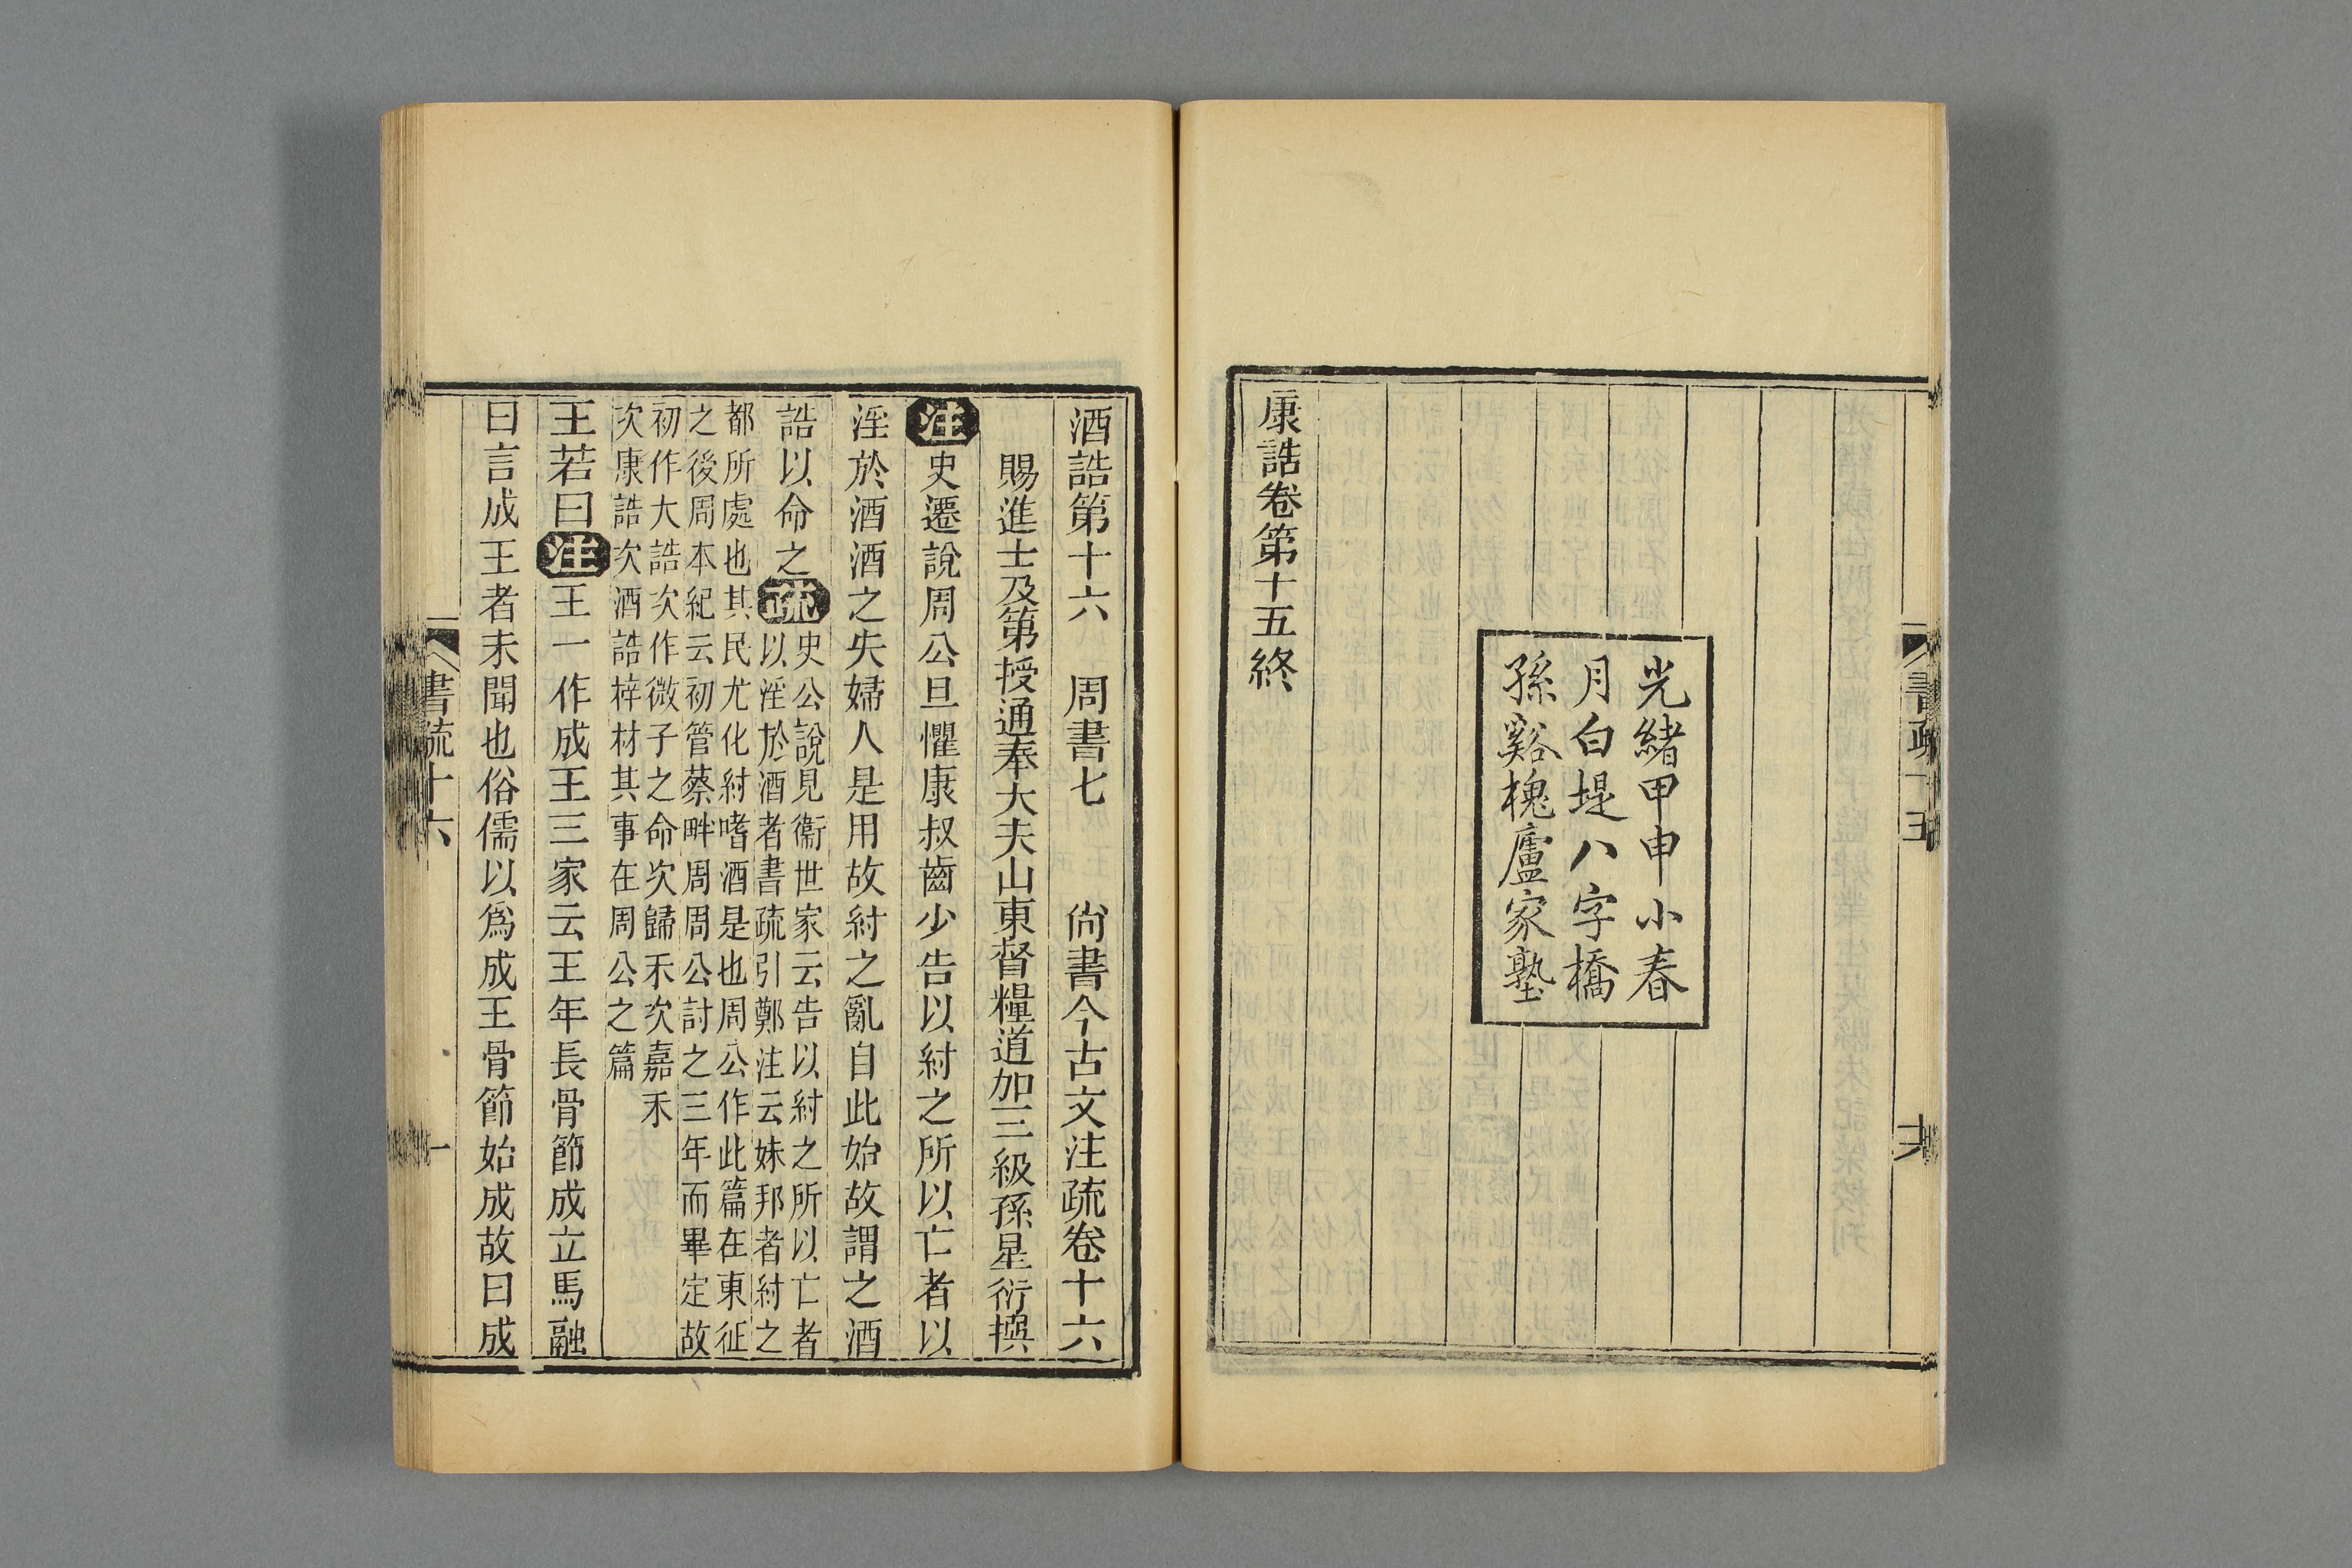 書疏十五
十六
光緒甲申小春
月白堤八字橋
孫谿槐廬家塾
康誥卷第十五終
酒誥第十六 周書七 尙書今古文注疏卷十六
賜進士及第授通奉大夫山東督糧道加三級孫星衍撰
注史遷說周公旦懼康叔齒少告以紂之所以亡者以
淫於酒酒之失婦人是用故紂之亂自此始故謂之酒
誥以命之疏史公說見衞世家云告以紂之所以亡者
以淫於酒者書疏引鄭注云妹邦者紂之
都所處也其民尤化紂嗜酒是也周公作此篇在東征
之後周本紀云初管蔡畔周周公討之三年而畢定故
初作大誥次作微子之命次歸禾次嘉禾
次康誥次酒誥梓材其事在周公之篇
王若曰注王一作成王三家云王年長骨節成立馬融
曰言成王者未聞也俗儒以爲成王骨節始成故曰成
書疏十六
一